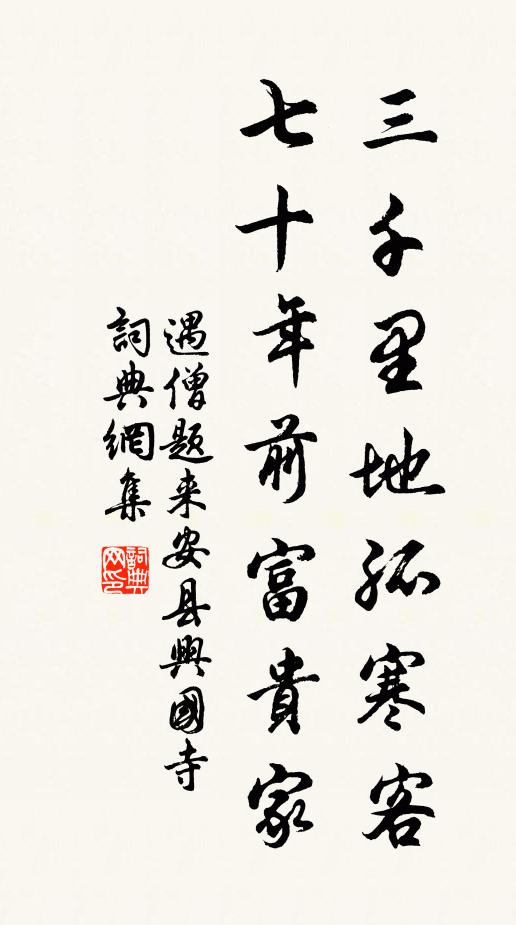 三千里地孤寒客
七十年前富貴家
遇僧题来安县興國寺
詞典網集
詞典网印